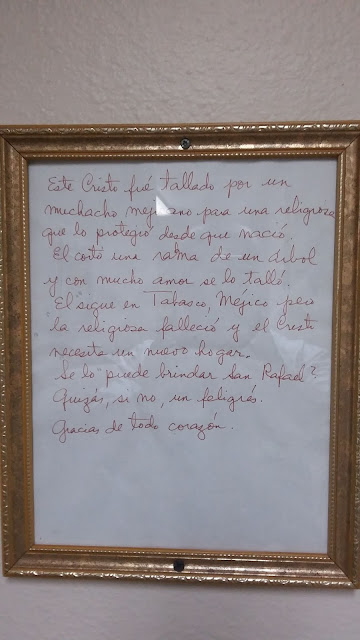 Este Cristo fué tallado por un
muchacho mejicano para una religiosa
que lo protegió desde que nació.
El cortó una rama de un árbol
y con mucho amor se lo talló.
El sigue en Tabasco, Méjico pero
la religiosa falleció y el Cristo
necesita un nuevo hogar.
Se lo puede brindar San Rafael?
Quizás, si no, un feligrés.
Gracias de todo corazón.